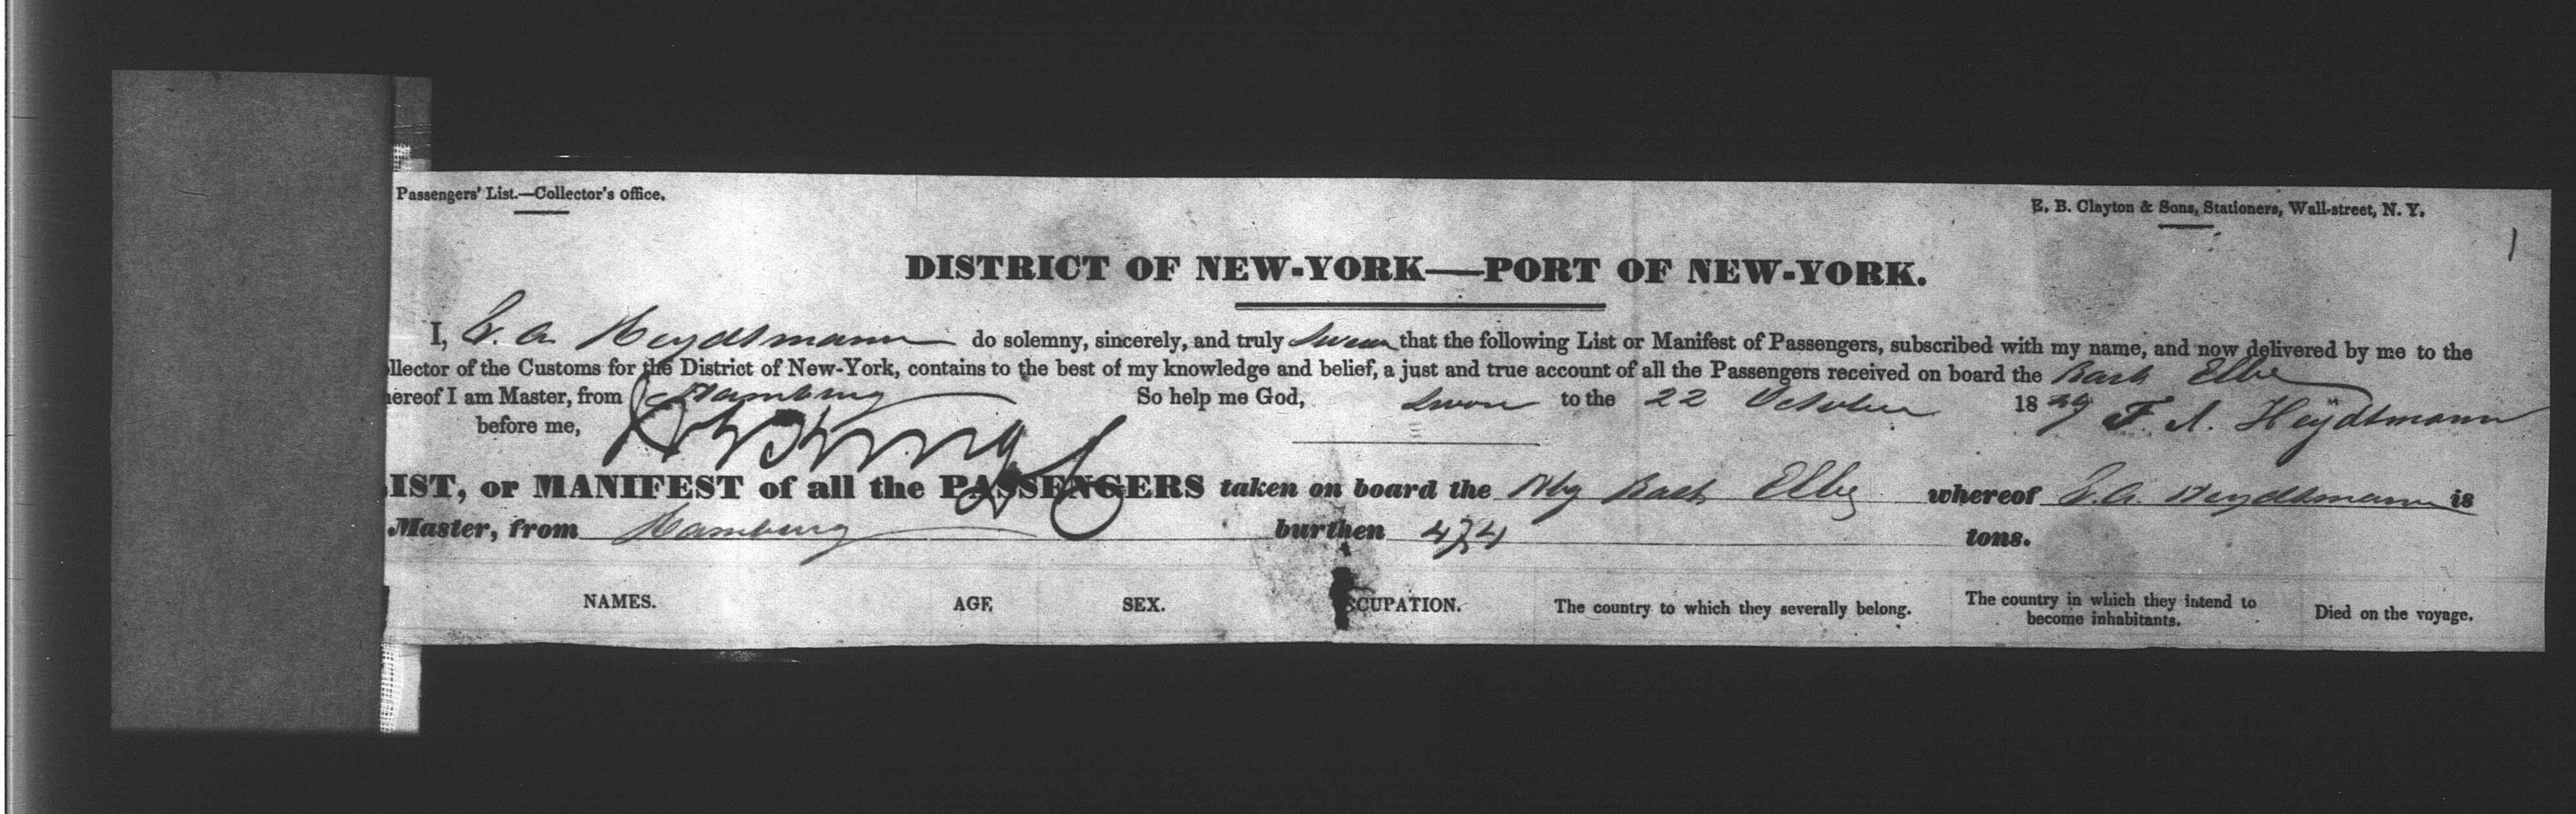 Passengers' List.—Collector's office.
E. B. Clayton & Sons, Stationers, Wall-street, N. Y.
DISTRICT OF NEW-YORK—PORT OF NEW-YORK.
I, F. A. Heydtmann do solemny, sincerely, and truly swear that the following List or Manifest of Passengers, subscribed with my name, and now delivered by me to the
llector of the Customs for the District of New-York, contains to the best of my knowledge and belief, a just and true account of all the Passengers received on board the Bark Elbe
hereof I am Master, from Hamburg So help me God,
Sworn to the 22 October 18 F. A. Heydtmann
before me,
IST, or MANIFEST of all the PASSENGERS taken on board the Hbg Bark Elbe whereof F. A. Heydtmann is
Master, from Hamburg burthen 474 tons.
NAMES. AGE SEX. CCUPATION. The country to which they severally belong. The country in which they intend to become inhabitants. Died on the voyage.